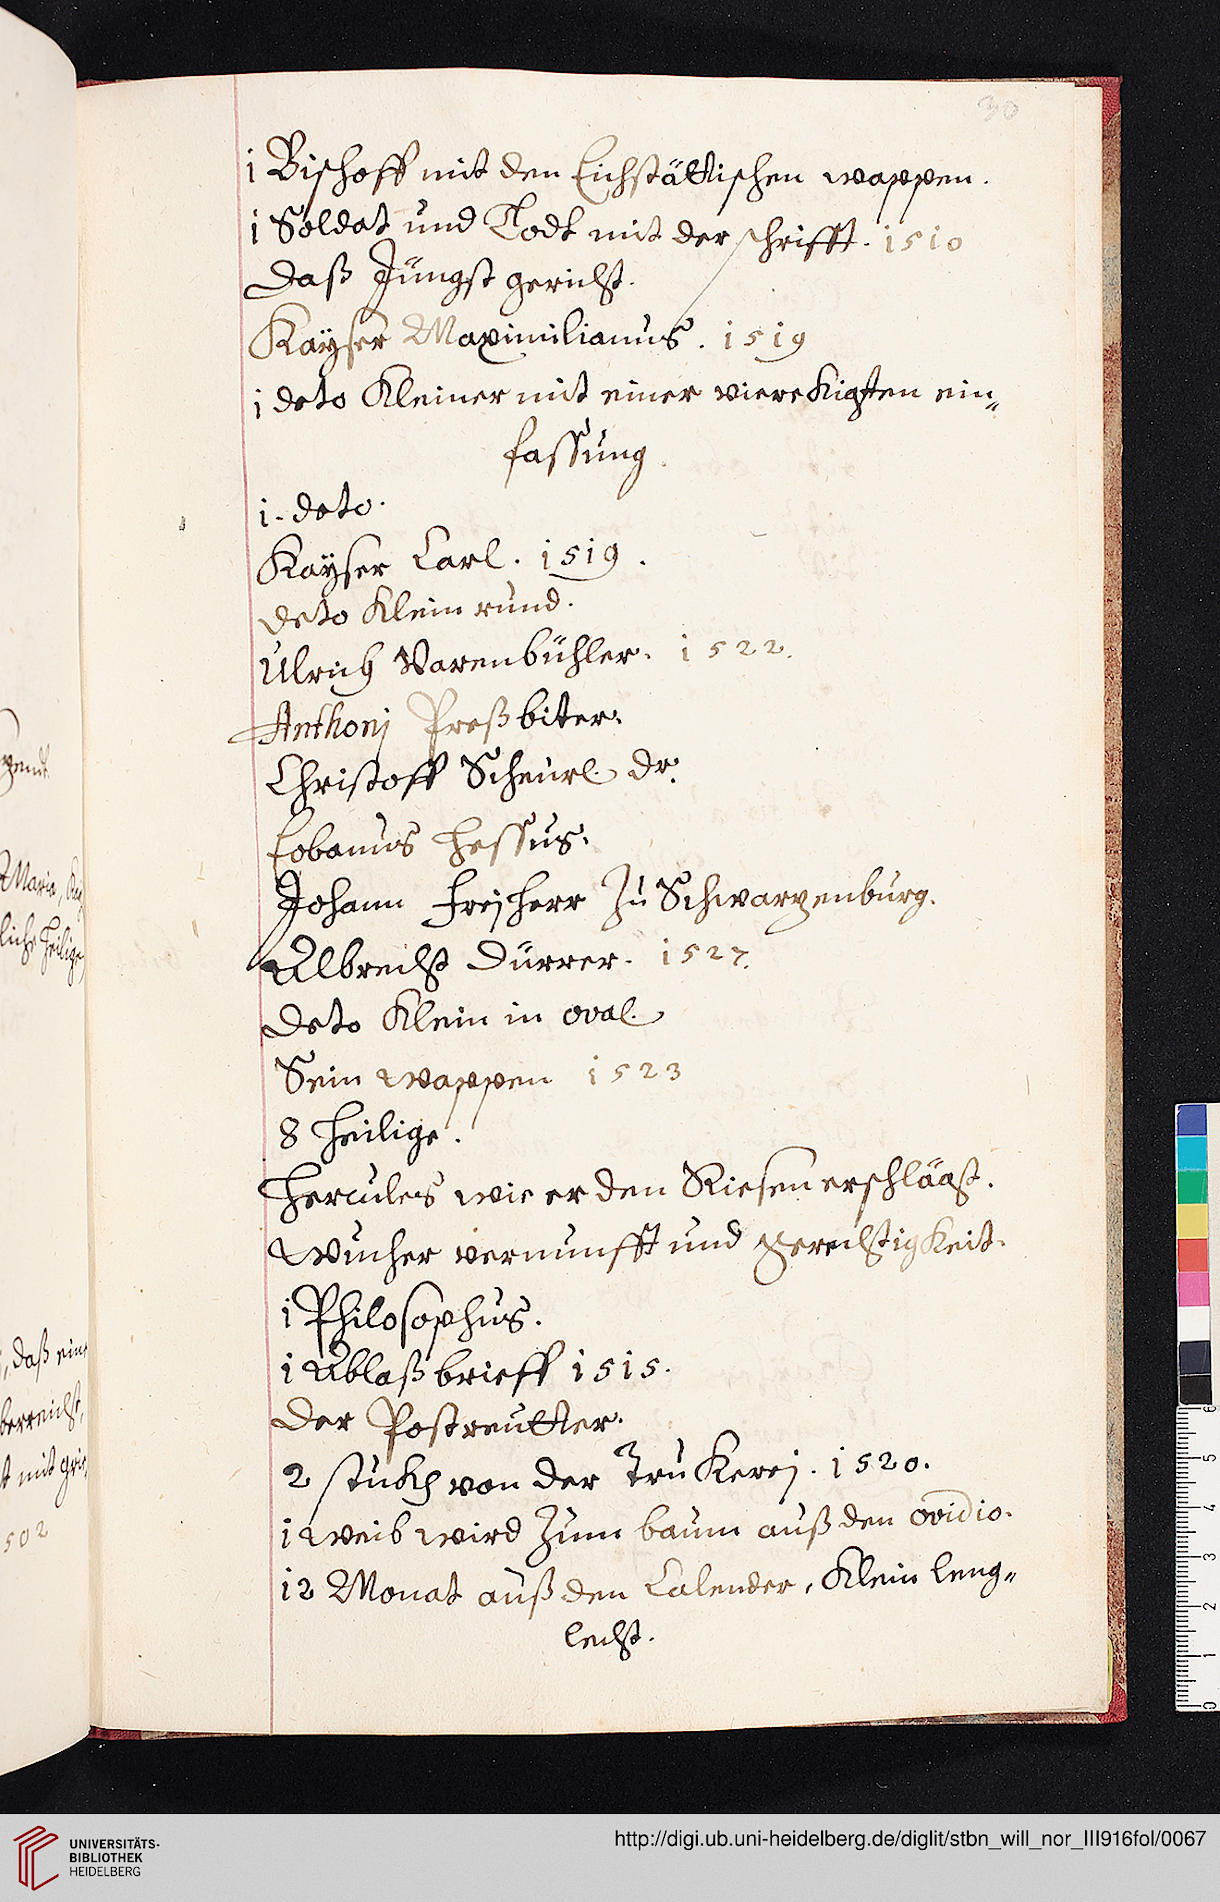 30
1 Bischoff mit den Eichstättischen wappen.
1 Soldat und Todt mit der schrifft. 1510
daß Jüngst gericht.
Kayser Maximilianus. 1519
1 deto Kleiner mit einer vierekigten ein„
fassung.
1. deto.
Kayser Carl. 1519.
deto Klein rund.
Ulrich Varenbühler. 1522.
Anthonj Preßbiter.
Christoff Scheurl dr.
Eobanus Hessus.
Johann Freÿherr Zu Schwarzenburg.
Albrecht Dürrer. 1527.
deto Klein in oval.
Sein wappen 1523
8 Heilige.
Hercules wie er den Riesen erschlägt.
wucher vernunfft und gerechtigkeit.
1 Philosophus.
1 Ablaß brieff 1515.
der Postreütter.
2 stukh von der TruKerej. 1520.
1 weib wird Zum baum auß den ovidio.
12 Monat auß den Calender, Klein leng„
lecht.
Maria,
liche Heilige
, daß ein
berreicht,
t mit
502
UNIVERSITÄTS-
BIBLIOTHEK
HEIDELBERG
http://digi.ub.uni-heidelberg.de/diglit/stbn_will_nor_III916fol/0067
6
5
4
3
2
1
0